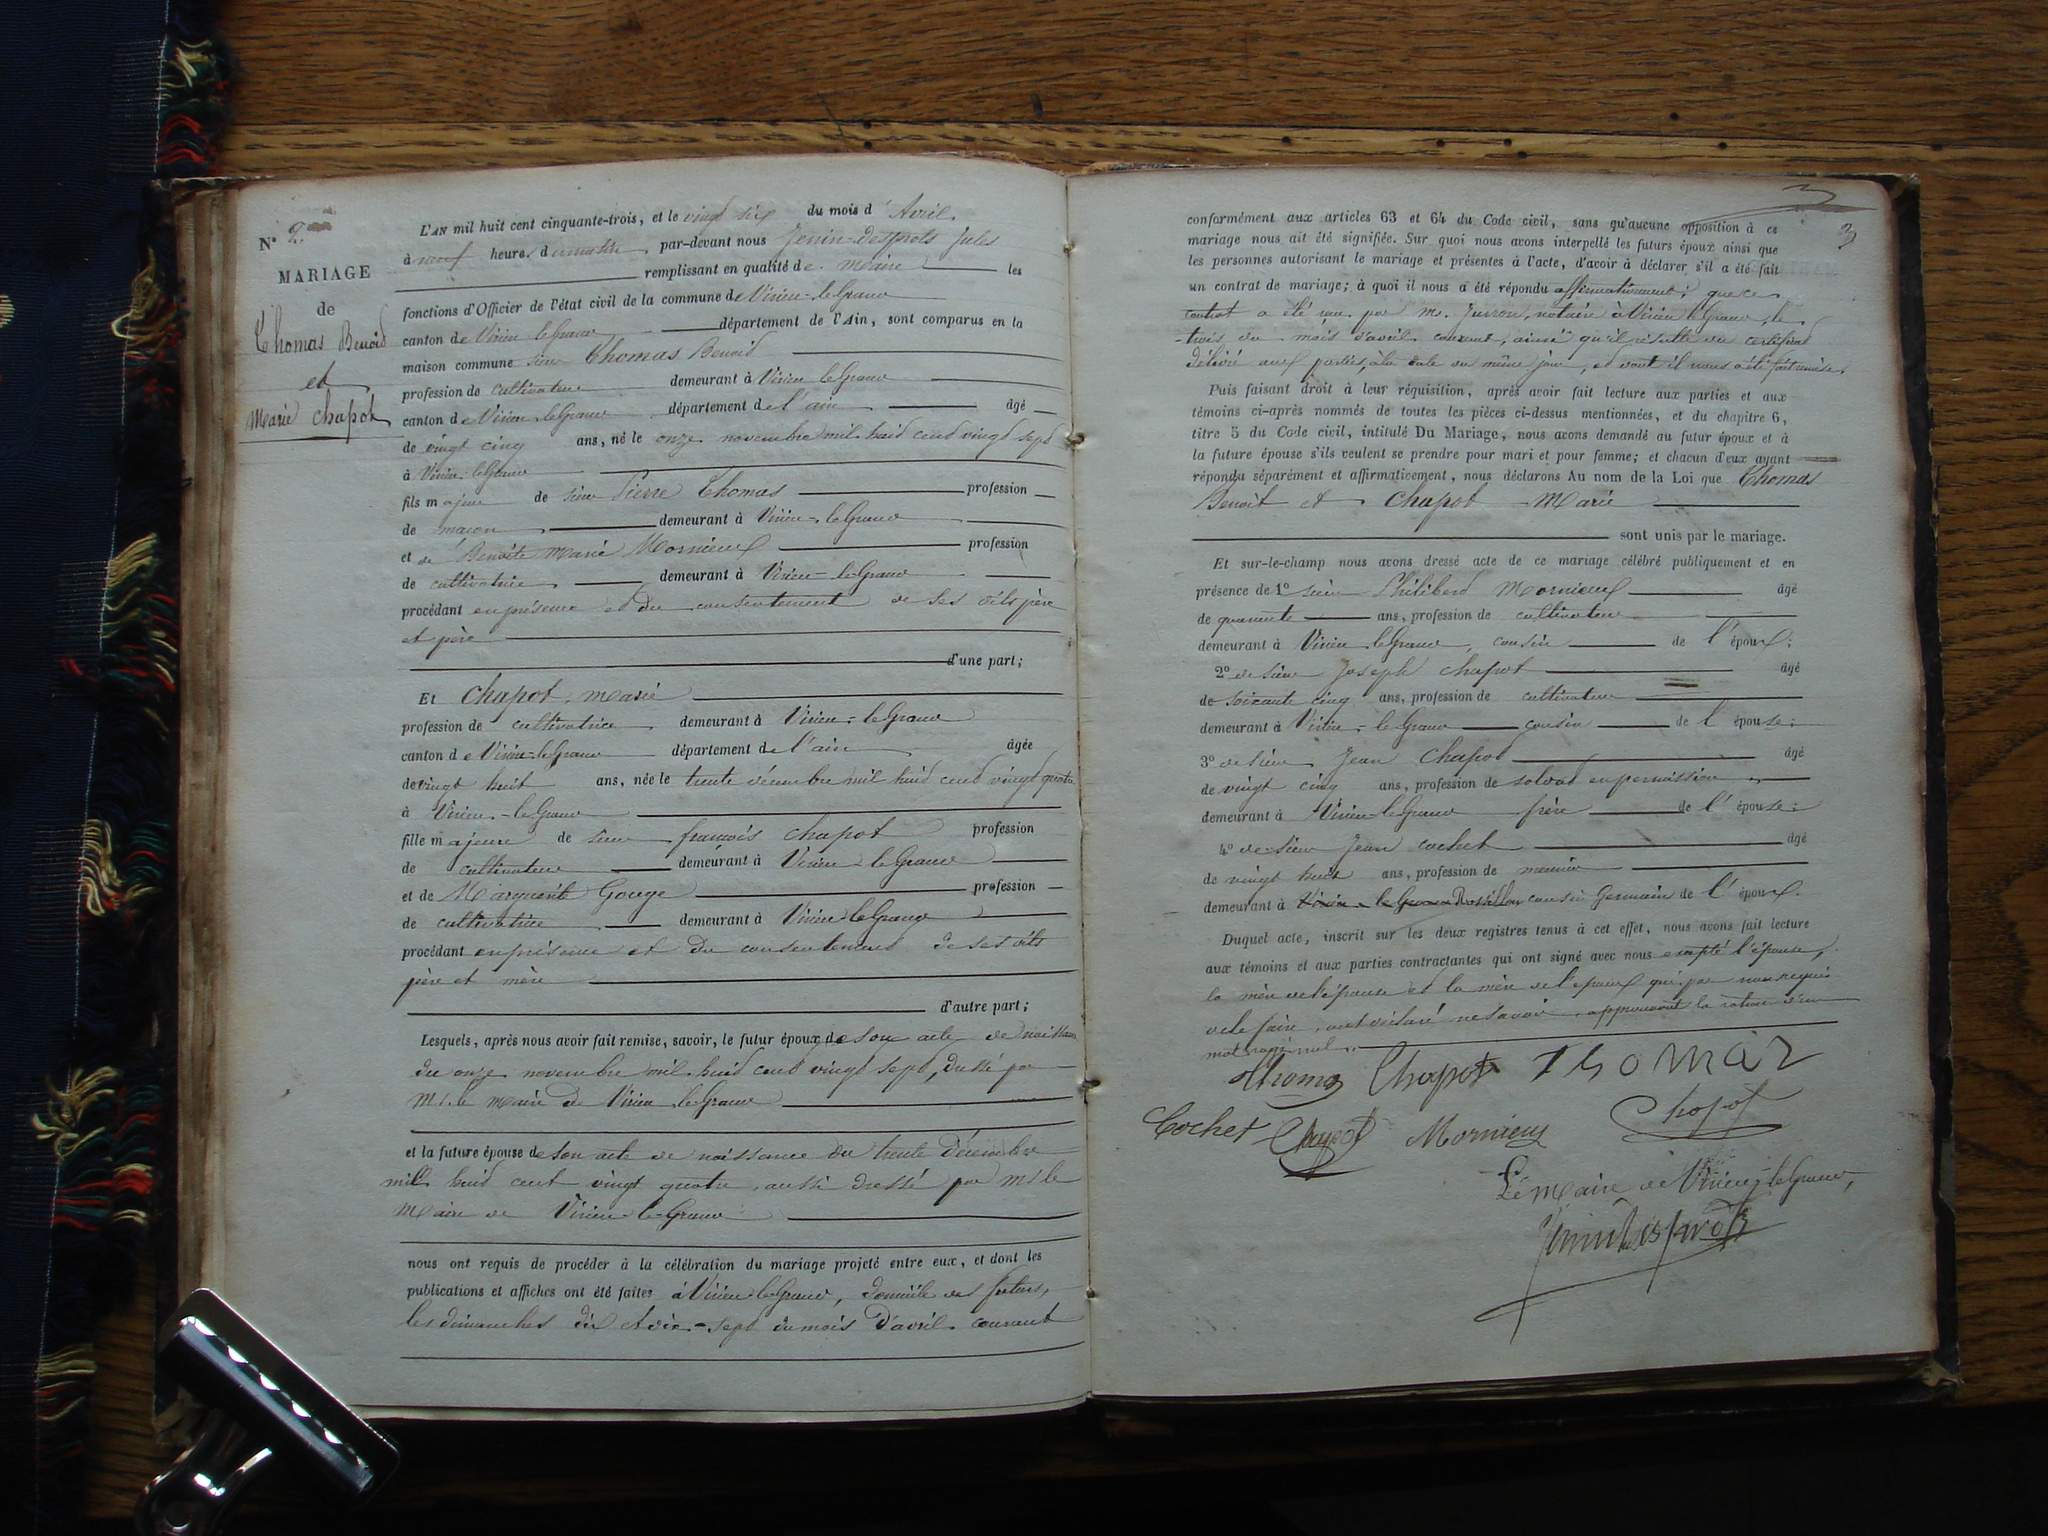 N° 2
MARIAGE
de
Thomas Benoit
et
Marie Chapot
L'AN mil huit cent cinquante-trois, et le vingt six du mois d'Avril
à neuf heures du matin, par-devant nous Jenin-Desprots Jules
remplissant en qualité de maire les
fonctions d'Officier de l'état civil de la commune de Virieu-le-Grand
canton de Virieu le Grand département de l'Ain, sont comparus en la
maison commune sieur Thomas Benoit
profession de cultivateur demeurant à Virieu le Grand
canton de Virieu le Grand département de l'ain âgé
de vingt cinq ans, né le onze novembre mil huit cent vingt sept
à Virieu-le-Grand
fils majeur de sieur Pierre Thomas profession
de maçon demeurant à Virieu-le-Grand
et de Benoite Marie Mornieux profession
de cultivatrice demeurant à Virieu-le-Grand
procédant en présence et du consentement de ses dits père
et père
d'une part;
Et Chapot Marie
profession de cultivatrice demeurant à Virieu-le-Grand
canton de Virieu-le-Grand département de l'ain âgée
de vingt huit ans, née le trente décembre mil huit cent vingt quatre
à Virieu-le-Grand
fille majeure de sieur françois Chapot profession
de cultivateur demeurant à Virieu le Grand
et de Marguerite Gouge profession
de cultivatrice demeurant à Virieu-le-Grand
procédant en présence et du consentement de ses dits
père et mère
d'autre part;
Lesquels, après nous avoir fait remise, savoir, le futur époux de son acte de naissance
du onze novembre mil huit cent vingt sept, dressé par
Mr. le maire de Virieu le Grand
et la future épouse de son acte de naissance du trente décembre
mill huit cent vingt quatre, aussi dressé par Mr le
Maire de Virieu-le-Grand
nous ont requis de procéder à la célébration du mariage projeté entre eux, et dont les
publications et affiches ont été faites à Virieu-le-Grand, domicile des futurs,
les dimanches dix et dix-sept du mois d'avril courant
3
3
conformément aux articles 63 et 64 du Code civil, sans qu'aucune opposition à ce
mariage nous ait été signifiée. Sur quoi nous avons interpellé les futurs époux ainsi que
les personnes autorisant le mariage et présentes à l'acte, d'avoir à déclarer s'il a été fait
un contrat de mariage; à quoi il nous a été répondu affirmativement; que ce
contrat a été reçu par Me. notaire à Virieu le Grand, le
trois du mois d'avril courant, ainsi qu'il résulte du certificat
délivré aux parties, à la date du même jour, et dont il nous a été fait remise.
Puis faisant droit à leur réquisition, après avoir fait lecture aux parties et aux
témoins ci-après nommés de toutes les pièces ci-dessus mentionnées, et du chapitre 6,
titre 5 du Code civil, intitulé Du Mariage, nous avons demandé au futur époux et à
la future épouse s'ils veulent se prendre pour mari et pour femme; et chacun d'eux ayant
répondu séparément et affirmativement, nous déclarons Au nom de la Loi que Thomas
Benoit et Chapot Marie
sont unis par le mariage.
Et sur-le-champ nous avons dressé acte de ce mariage célébré publiquement et en
présence de 1° sieur Philibert Mornieux âgé
de quarante ans, profession de cultivateur
demeurant à Virieu le Grand, cousin de l'époux;
2° de sieur Joseph Chapot âgé
de soixante cinq ans, profession de cultivateur
demeurant à Virieu-le-Grand cousin de l'épouse;
3° de sieur Jean Chapot âgé
de vingt cinq ans, profession de soldat en permission
demeurant à Virieu-le-Grand frère de l'épouse;
4° de sieur Jean Cochet âgé
de vingt huit ans, profession de meunier
demeurant à Virieu-le-Grand Rossillon cousin Germain de l'époux.
Duquel acte, inscrit sur les deux registres tenus à cet effet, nous avons fait lecture
aux témoins et aux parties contractantes qui ont signé avec nous excepté l'épouse,
la mère de l'épouse et la mère de l'époux qui par nous requis
de le faire, ont déclaré ne savoir, approuvant la rature d'un
mot rayé nul.
Thomas Chapot Thomas
Cochet Chapot Mornieux Chapot
Le Maire de Virieu-le-Grand,
Jenin Desprots